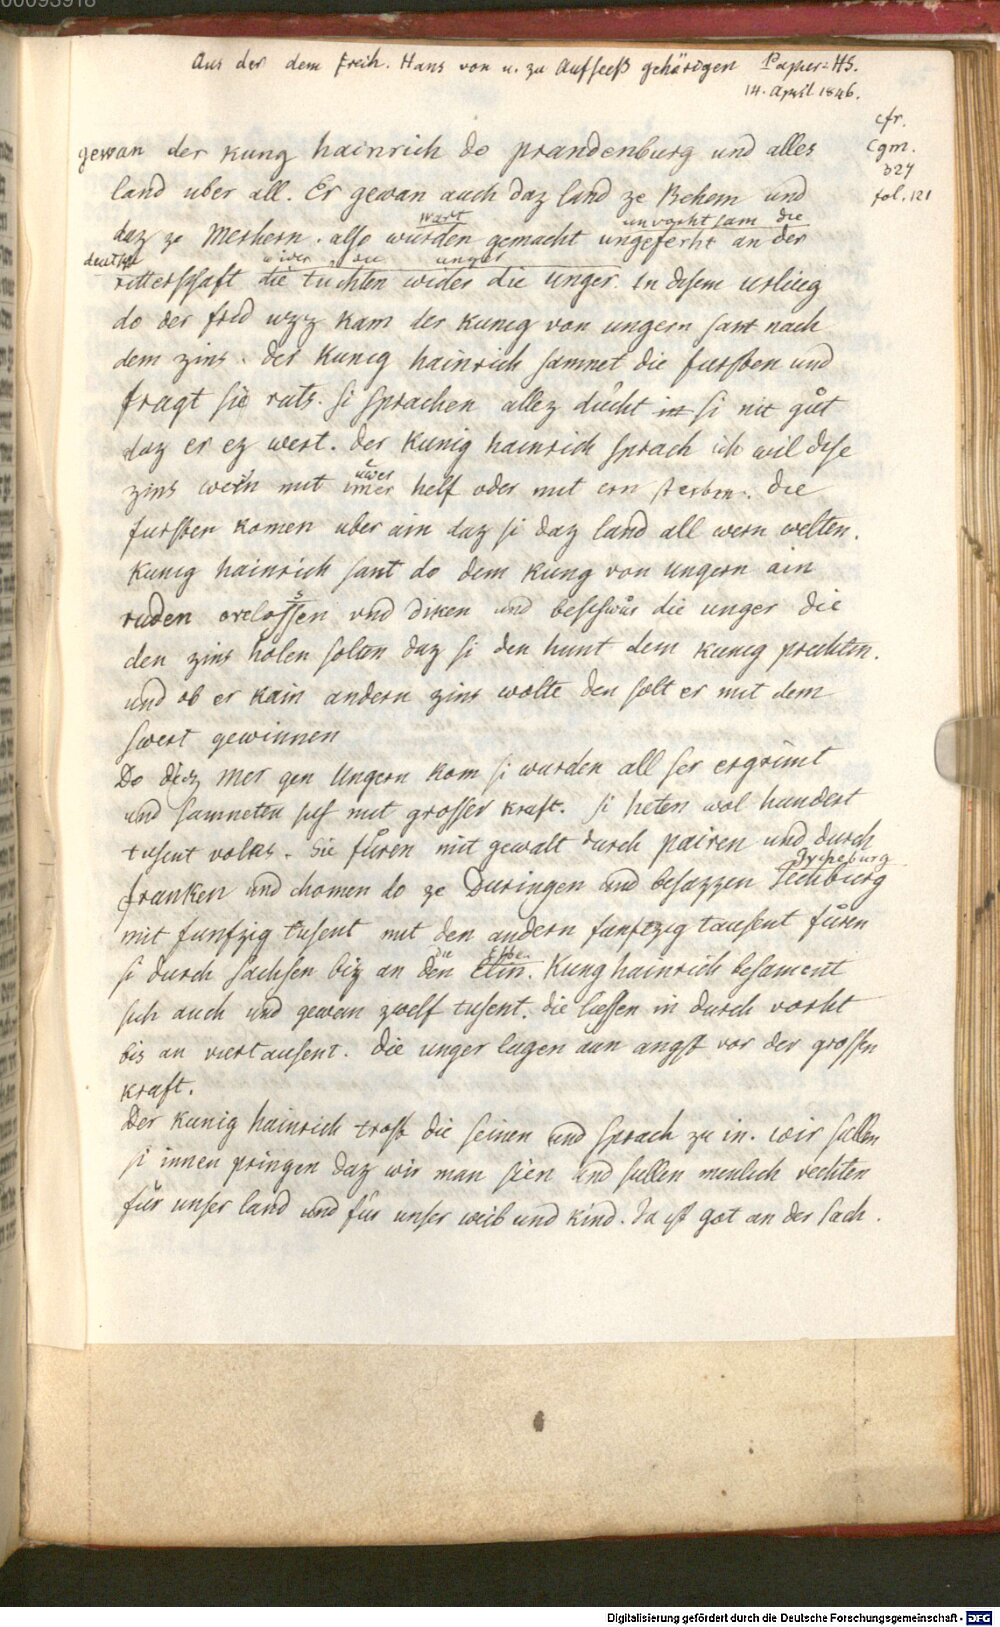 00093918
Aus der dem Freih. Hans von u. zu Aufseß gehörigen Papier-HS.
14. April 1846.
cfr.
Cgm.
327
fol. 121
gewan der kung hainrich do prandenburg und alles
land uber all. Er gewan auch daz land ze Behem und
wart unvorhtsam die
daz ze Merhern. also wurden gemacht ungeferht an der
wider unger
ritterschaft die tuchten wider die unger. in disem urlieg
do der frid uzz kam der kuneg von ungern sant nach
dem zins. der kunig hainrich samnet die fursten und
fragt sie rats. si sprachen allez ducht si nit gůt
daz er ez wert. der kunig hainrich sprach ich wil dise
ůwer
zins wern mit imer helf oder mit ern sterben. die
fursten komen uber ain daz si daz land all wern wolten.
kunig hainrich sant do dem kung von ungern ain
s
ruden orelossen vnd diken und beschwůr die unger die
den zins holen solten daz si den hunt dem kuneg prechten.
und ob er kain andern zins wolte den solt er mit dem
swert gewinnen
Do dicz mer gen Ungern kom si wurden all ser ergrimt
und samneten sich mit grosser kraft. si heten wol hundert
tusent volks. Sie fůren mit gewalt durch pairen und durch
Jycheburg
franken und chomen do ze Duringen und besazzen Jechburg
mit funfzig tusent mit den andern funftzig tausent fůrn
die Elbe.
si durch Sachsen biz an den Elin. Kung hainrich besament
sich auch und gewan zwelf tusent. die liessen in durch vorht
bis an viertausent. die unger lagen aun angst vor der grossen
kraft.
Der kunig hainrich trost die seinen und sprach zu in. wir sullen
si innen pringen daz wir man sien und sullen menlich vechten
für unser land und für unser weib und kind. Ja ist got an der sach.
Digitalisierung gefördert durch die Deutsche Forschungsgemeinschaft - DFG